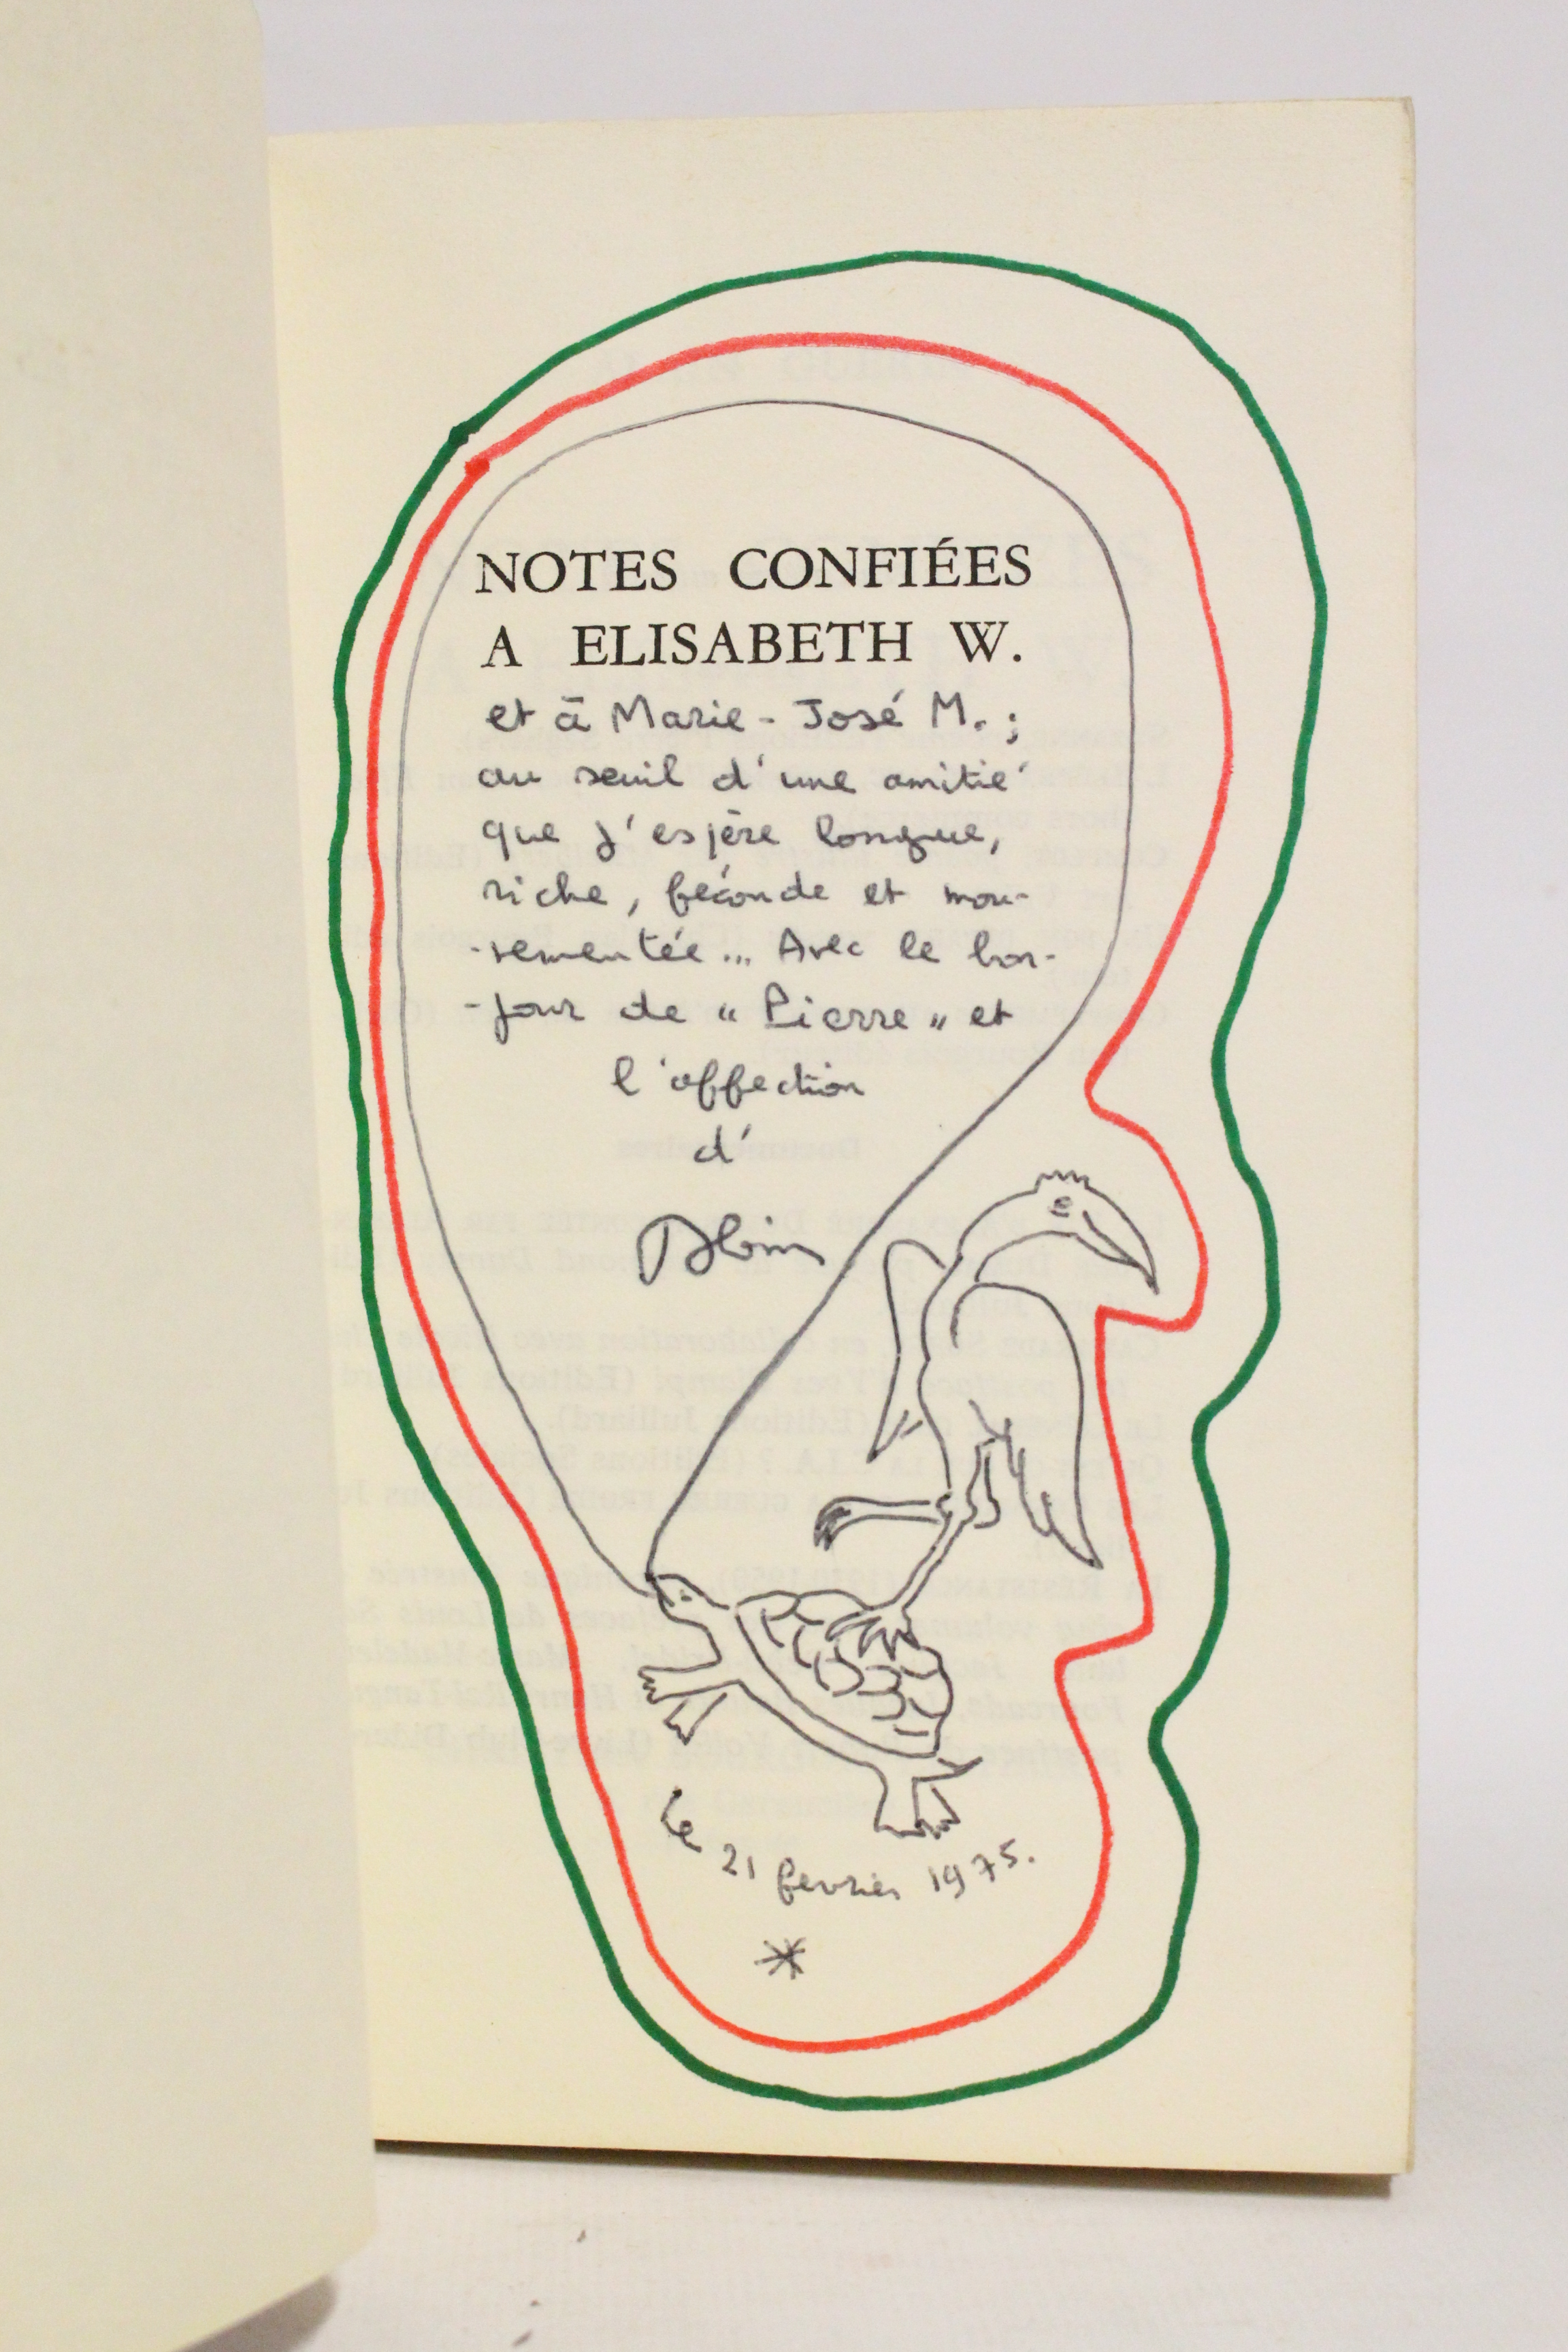 NOTES CONFIÉES
A ELISABETH W.
et à Marie-José M. ;
au seuil d'une amitié
que j'espère longue,
riche, féconde et mou-
-vementée... Avec le bon-
-jour de "Pierre" et
l'affection
d'
Alain
le 21 février 1975.